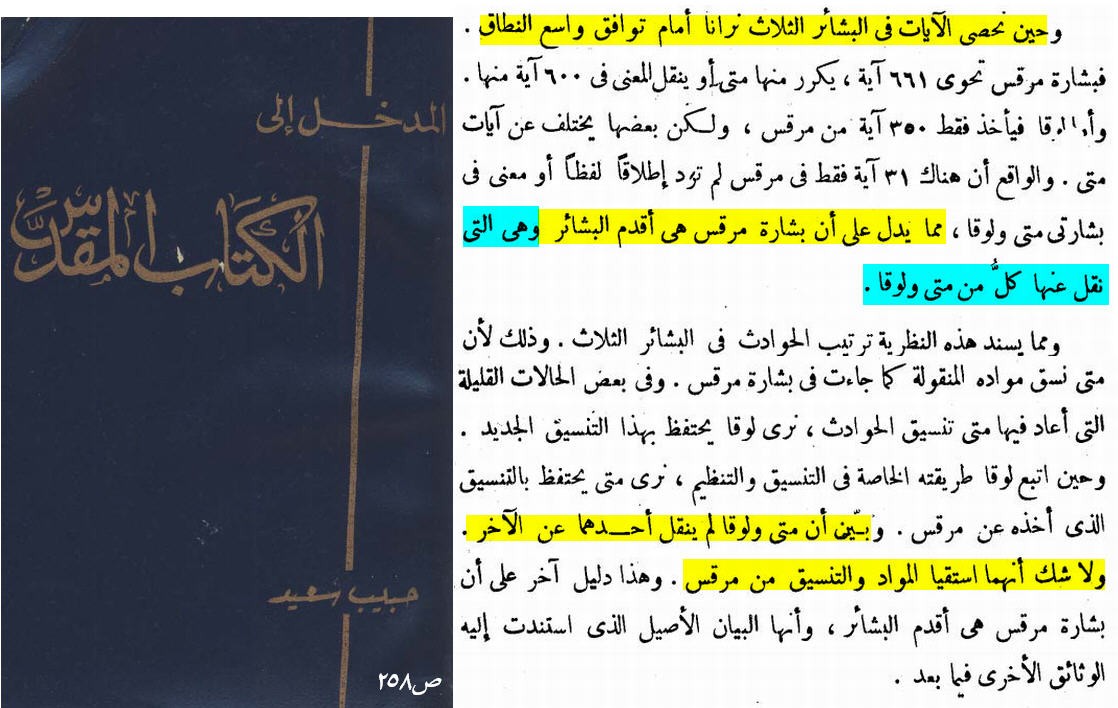 المدخل إلى
الكتاب المقدس
حبيب سعيد
ص٢٥٨
وحين نحصى الآيات فى البشائر الثلاث نرانا أمام توافق واسع النطاق .
فبشارة مرقس تحوى ٦٦١ آية ، يكرر منها متى أو ينقل المعنى فى ٦٠٠ آية منها .
فيأخذ فقط ٣٥٠ آية من مرقس ، ولكن بعضها يختلف عن آيات
متى . والواقع أن هناك ٣١ آية فقط فى مرقس لم ترد إطلاقاً لفظاً أو معنى فى
بشارتى متى ولوقا ، مما يدل على أن بشارة مرقس هى أقدم البشائر وهى التى
نقل عنها كلُّ من متى ولوقا .
ومما يسند هذه النظرية ترتيب الحوادث فى البشائر الثلاث . وذلك لأن
متى نسق مواده المنقولة كما جاءت فى بشارة مرقس . وفى بعض الحالات القليلة
التى أعاد فيها متى تنسيق الحوادث ، نرى لوقا يحتفظ بهذا التنسيق الجديد .
وحين اتبع لوقا طريقته الخاصة فى التنسيق والتنظيم ، نرى متى يحتفظ بالتنسيق
الذى أخذه عن مرقس . وبيّن أن متى ولوقا لم ينقل أحدهما عن الآخر .
ولا شك أنهما استقيا المواد والتنسيق من مرقس . وهذا دليل آخر على أن
بشارة مرقس هى أقدم البشائر ، وأنها البيان الأصيل الذى استندت إليه
الوثائق الأخرى فيما بعد .